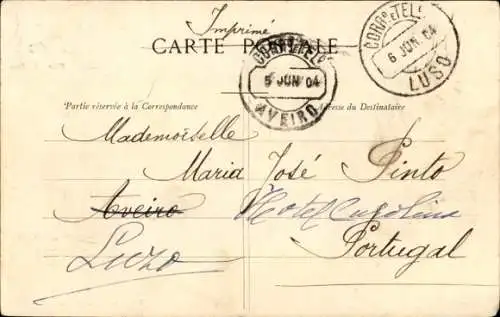 Imprimé
CARTE POSTALE
CORRº E TELº
5 JUN 04
AVEIRO
CORRº E TELº
6 JUN 04
LUSO
Partie réservée à la Correspondance
Adresse du Destinataire
Mademoiselle
Maria José Pinto
Aveiro Hotel
Portugal
Luzo